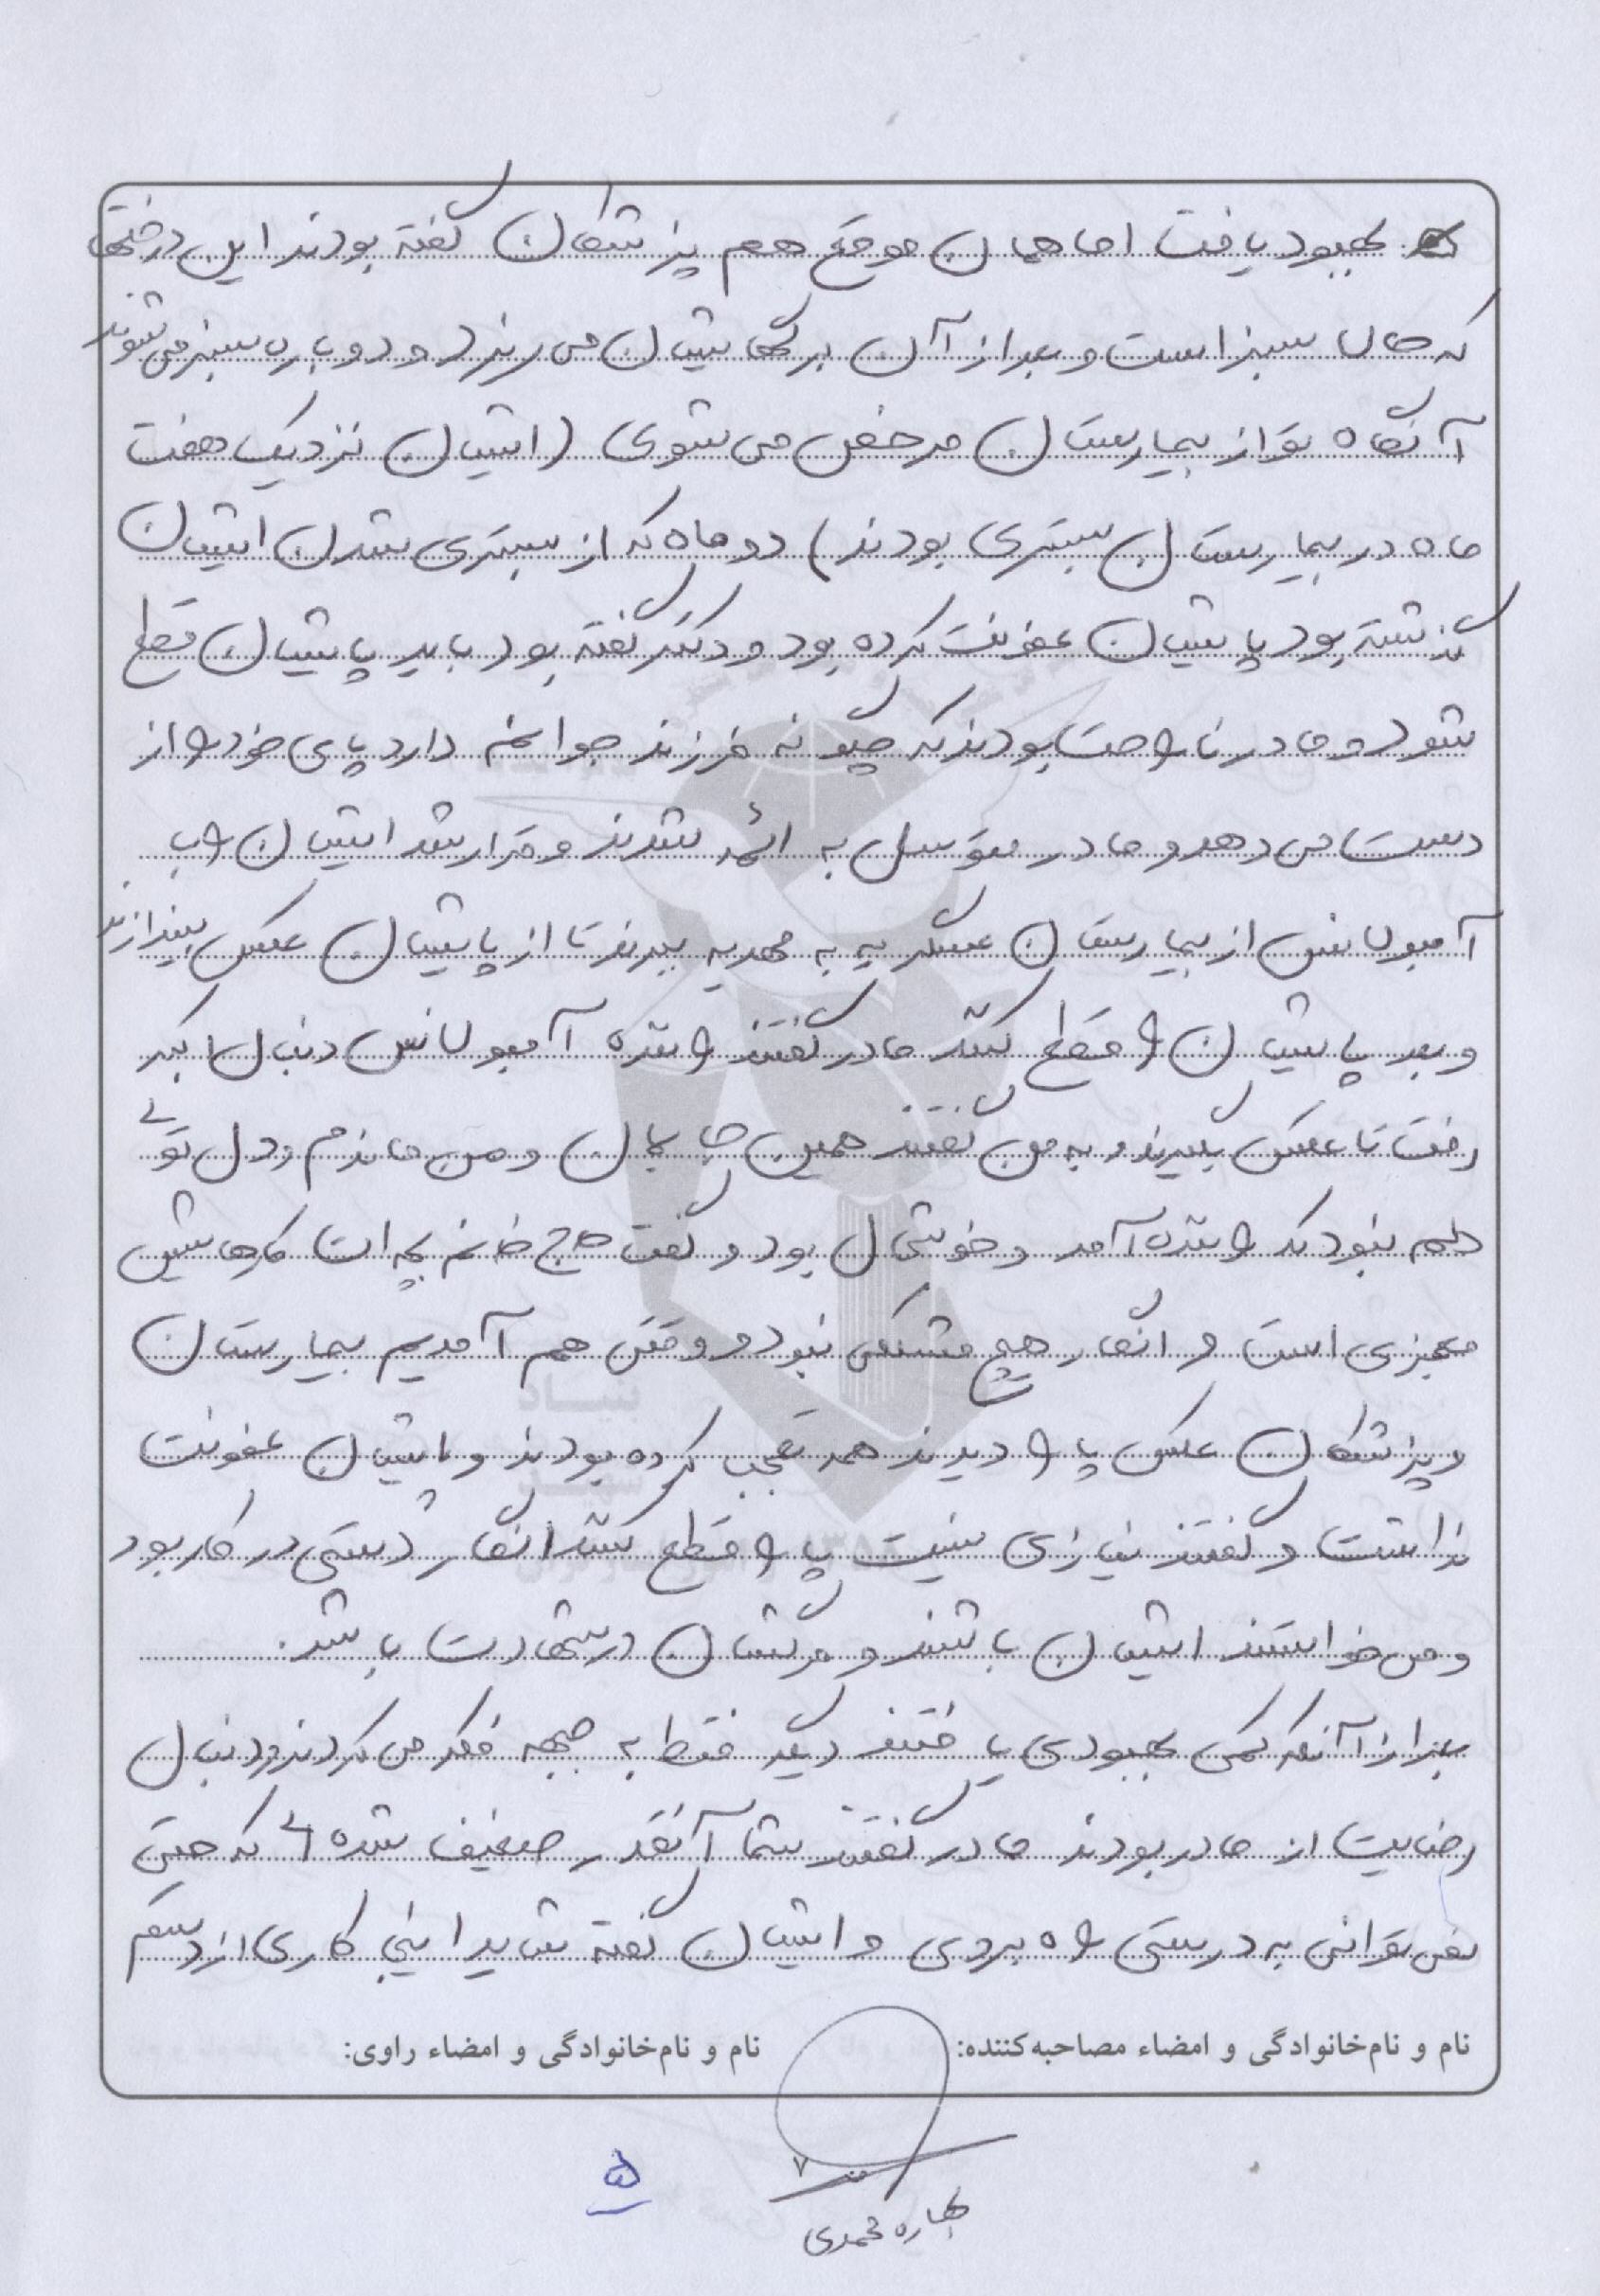 بهبود یافت اما همان موقع هم پزشکان گفته بودند این درختها
که حال سبز است و بعد از آن برگهایشان می ریزد و دوباره سبز می شوند
آنگاه تو از بیمارستان مرخص می شوی (ایشان نزدیک هفت
ماه در بیمارستان بستری بودند) دو ماه که از بستری شدن ایشان
گذشته بود پایشان عفونت کرده بود و دکتر گفته بود باید پایشان قطع
شود و مادر ناراحت بودند که چگونه فرزند جوانم دارد پای خود را از
دست می دهد و مادر متوسل به ائمه شدند و قرار شد ایشان را با
آمبولانس از بیمارستان عسگریه به مهدیه ببرند تا از پایشان عکس بیندازند
و بعد پایشان را قطع کنند مادر گفتند راننده آمبولانس دنبال اکبر
رفت تا عکس بگیرند و به من گفتند همین جا بمان و من ماندم و دل توی
دلم نبود که راننده آمد و خوشحال بود و گفت حاج خانم بچه ات کارهایش
معجزی است و انگار هیچ مشکلی نبود و وقتی هم آمدیم بیمارستان
و پزشکان عکس پا را دیدند همه تعجب کرده بودند و پایشان عفونت
نداشت و گفتند نیازی نیست پا را قطع کنند انگار دستی در کار بود
و می خواستند ایشان باشند و مرگشان در شهادت باشد.
بعد از آنکه کمی بهبودی یافتند دیگر فقط به جبهه فکر می کردند و دنبال
رضایت از مادر بودند مادر گفتند شما آنقدر ضعیف شده ای که حتی
نمی توانی به درستی راه بروی و ایشان گفته شاید اینجا کاری از دستم
نام و نام‌خانوادگی و امضاء مصاحبه‌کننده: نام و نام‌خانوادگی و امضاء راوی:
۵
بهاره محمدی